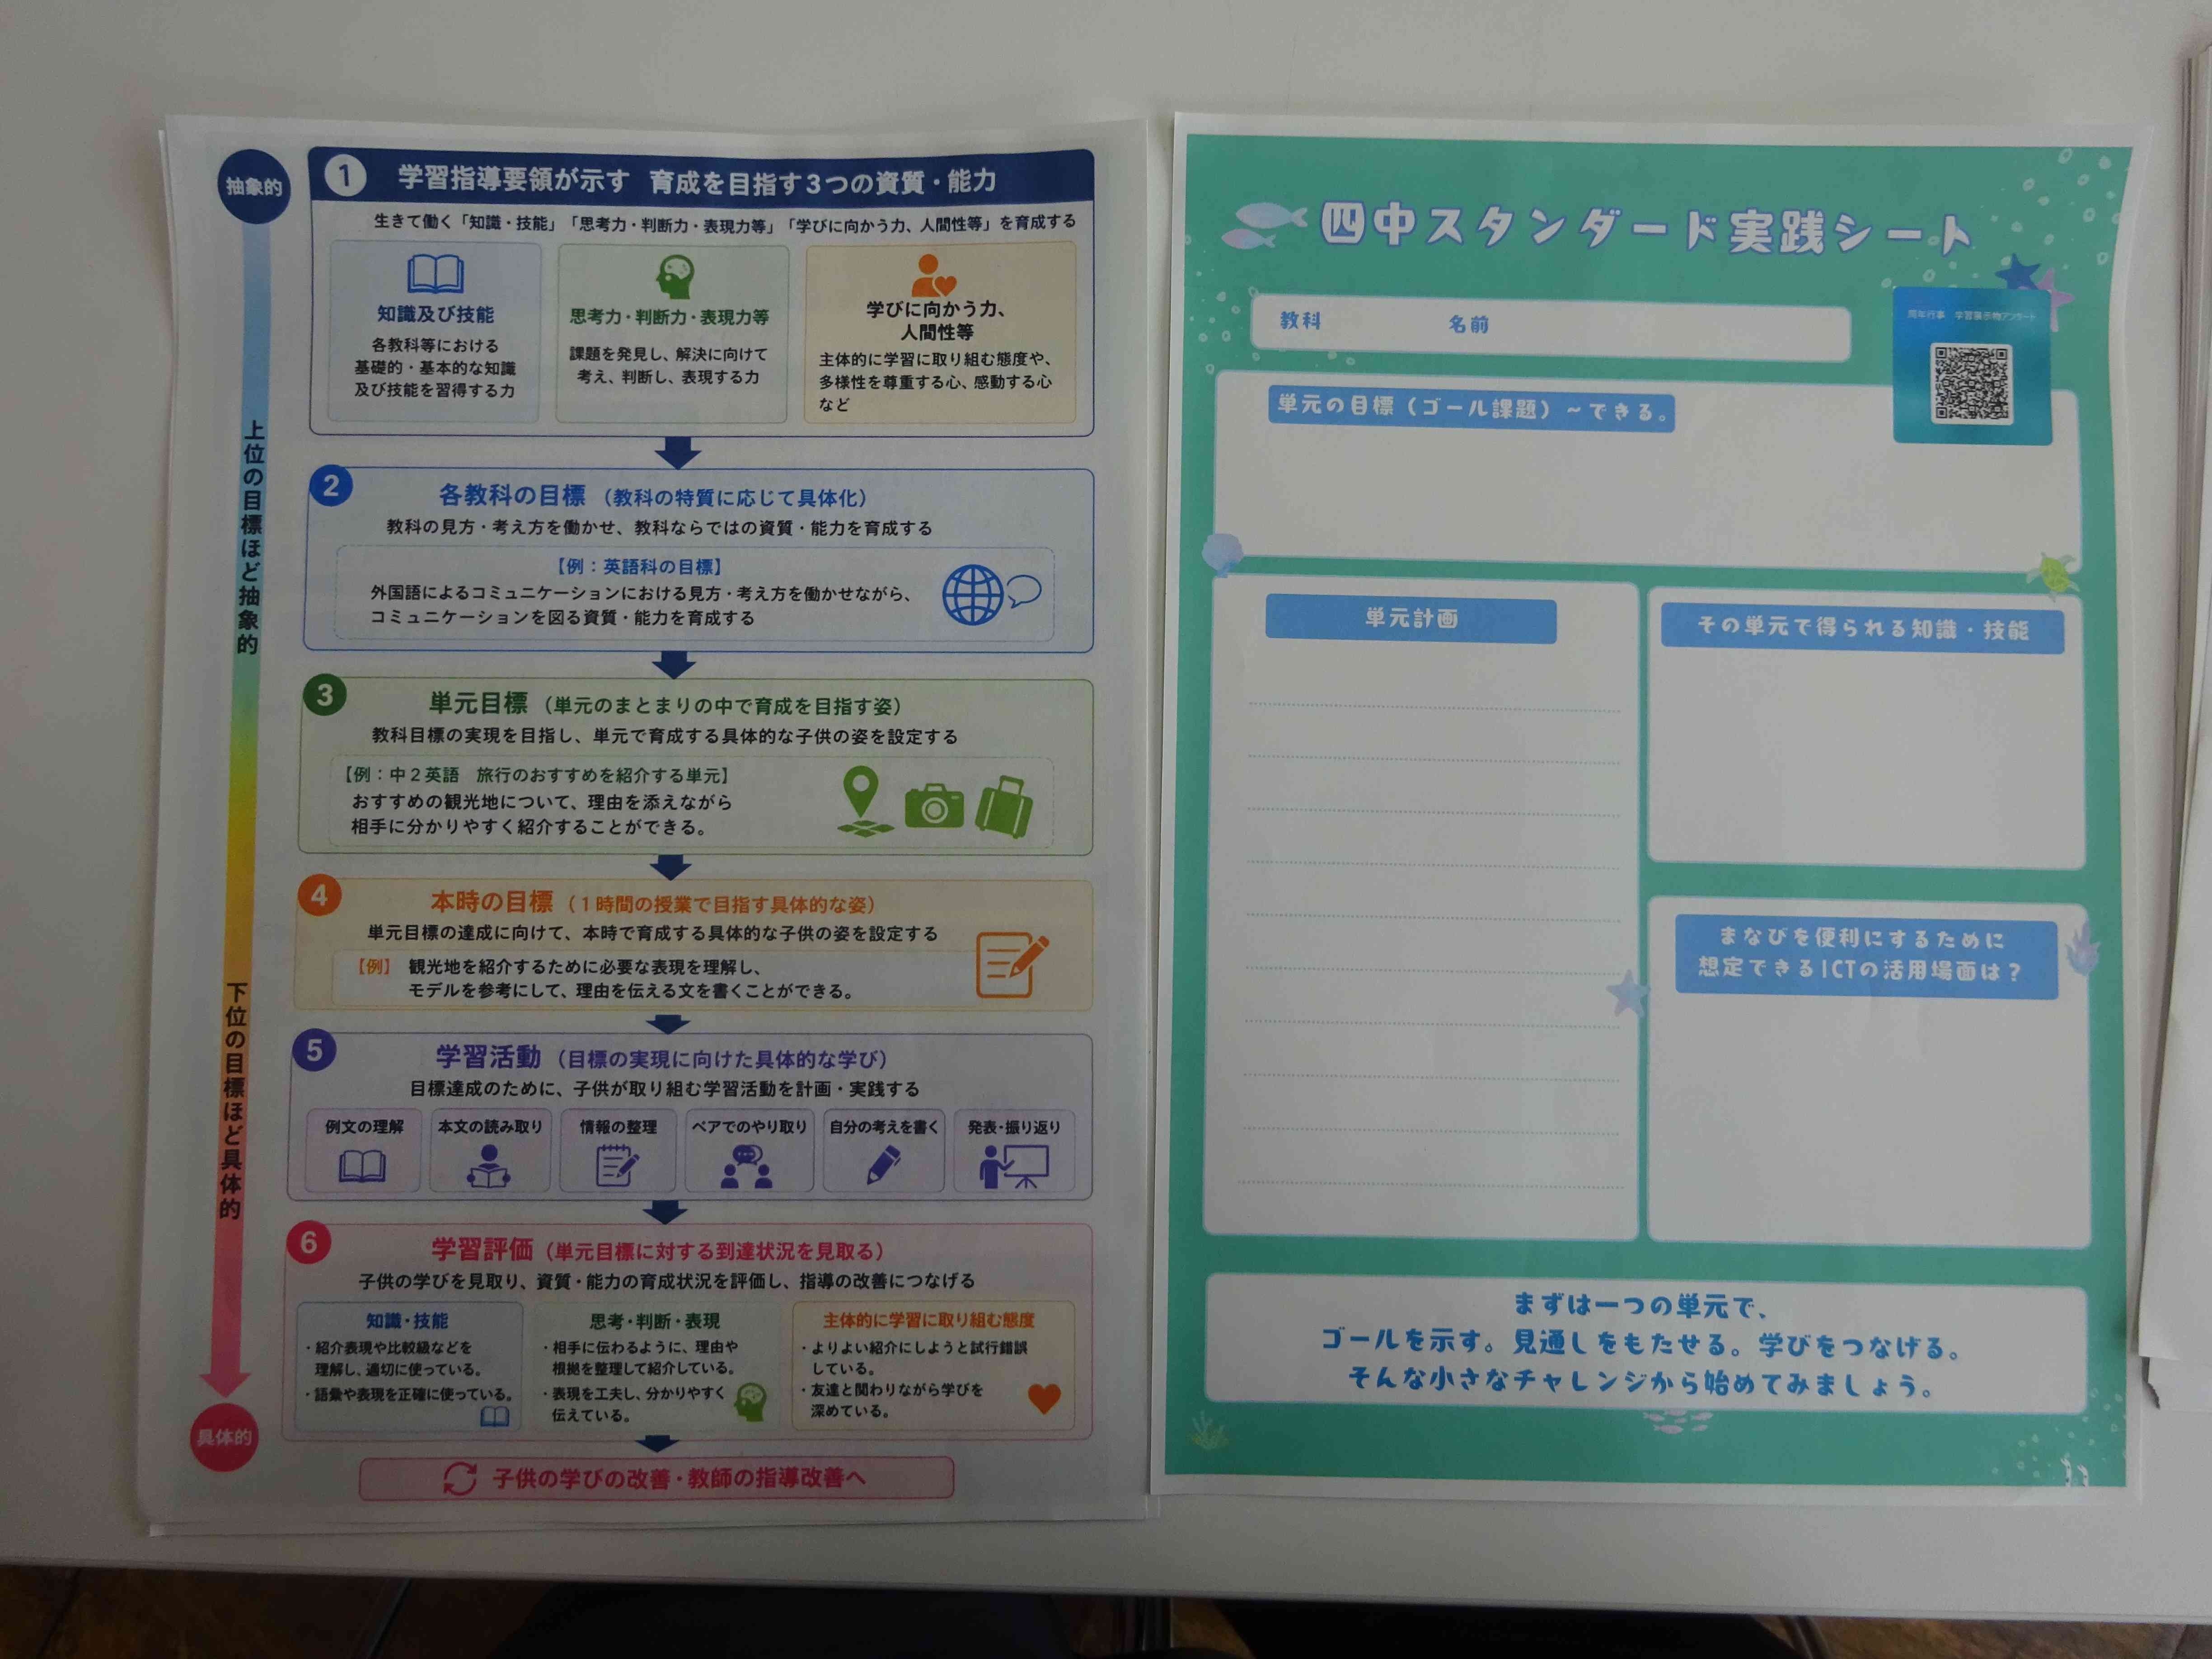 抽象的
上位の目標ほど抽象的
下位の目標ほど具体的
具体的
1 学習指導要領が示す 育成を目指す3つの資質・能力
生きて働く「知識・技能」「思考力・判断力・表現力等」「学びに向かう力、人間性等」を育成する
知識及び技能
各教科等における
基礎的・基本的な知識
及び技能を習得する力
思考力・判断力・表現力等
課題を発見し、解決に向けて
考え、判断し、表現する力
学びに向かう力、
人間性等
主体的に学習に取り組む態度や、
多様性を尊重する心、感動する心
など
2 各教科の目標（教科の特質に応じて具体化）
教科の見方・考え方を働かせ、教科ならではの資質・能力を育成する
【例：英語科の目標】
外国語によるコミュニケーションにおける見方・考え方を働かせながら、
コミュニケーションを図る資質・能力を育成する
3 単元目標（単元のまとまりの中で育成を目指す姿）
教科目標の実現を目指し、単元で育成する具体的な子供の姿を設定する
【例：中2英語 旅行のおすすめを紹介する単元】
おすすめの観光地について、理由を添えながら
相手に分かりやすく紹介することができる。
4 本時の目標（1時間の授業で目指す具体的な姿）
単元目標の達成に向けて、本時で育成する具体的な子供の姿を設定する
【例】 観光地を紹介するために必要な表現を理解し、
モデルを参考にして、理由を伝える文を書くことができる。
5 学習活動（目標の実現に向けた具体的な学び）
目標達成のために、子供が取り組む学習活動を計画・実践する
例文の理解
本文の読み取り
情報の整理
ペアでのやり取り
自分の考えを書く
発表・振り返り
6 学習評価（単元目標に対する到達状況を見取る）
子供の学びを見取り、資質・能力の育成状況を評価し、指導の改善につなげる
知識・技能
・紹介表現や比較級などを
理解し、適切に使っている。
・語彙や表現を正確に使っている。
思考・判断・表現
・相手に伝わるように、理由や
根拠を整理して紹介している。
・表現を工夫し、分かりやすく
伝えている。
主体的に学習に取り組む態度
・よりよい紹介にしようと試行錯誤
している。
・友達と関わりながら学びを
深めている。
子供の学びの改善・教師の指導改善へ
四中スタンダード実践シート
教科 名前
周年行事 学習展示物アンケート
単元の目標（ゴール課題）～できる。
単元計画
その単元で得られる知識・技能
まなびを便利にするために
想定できるICTの活用場面は？
まずは一つの単元で、
ゴールを示す。見通しをもたせる。学びをつなげる。
そんな小さなチャレンジから始めてみましょう。